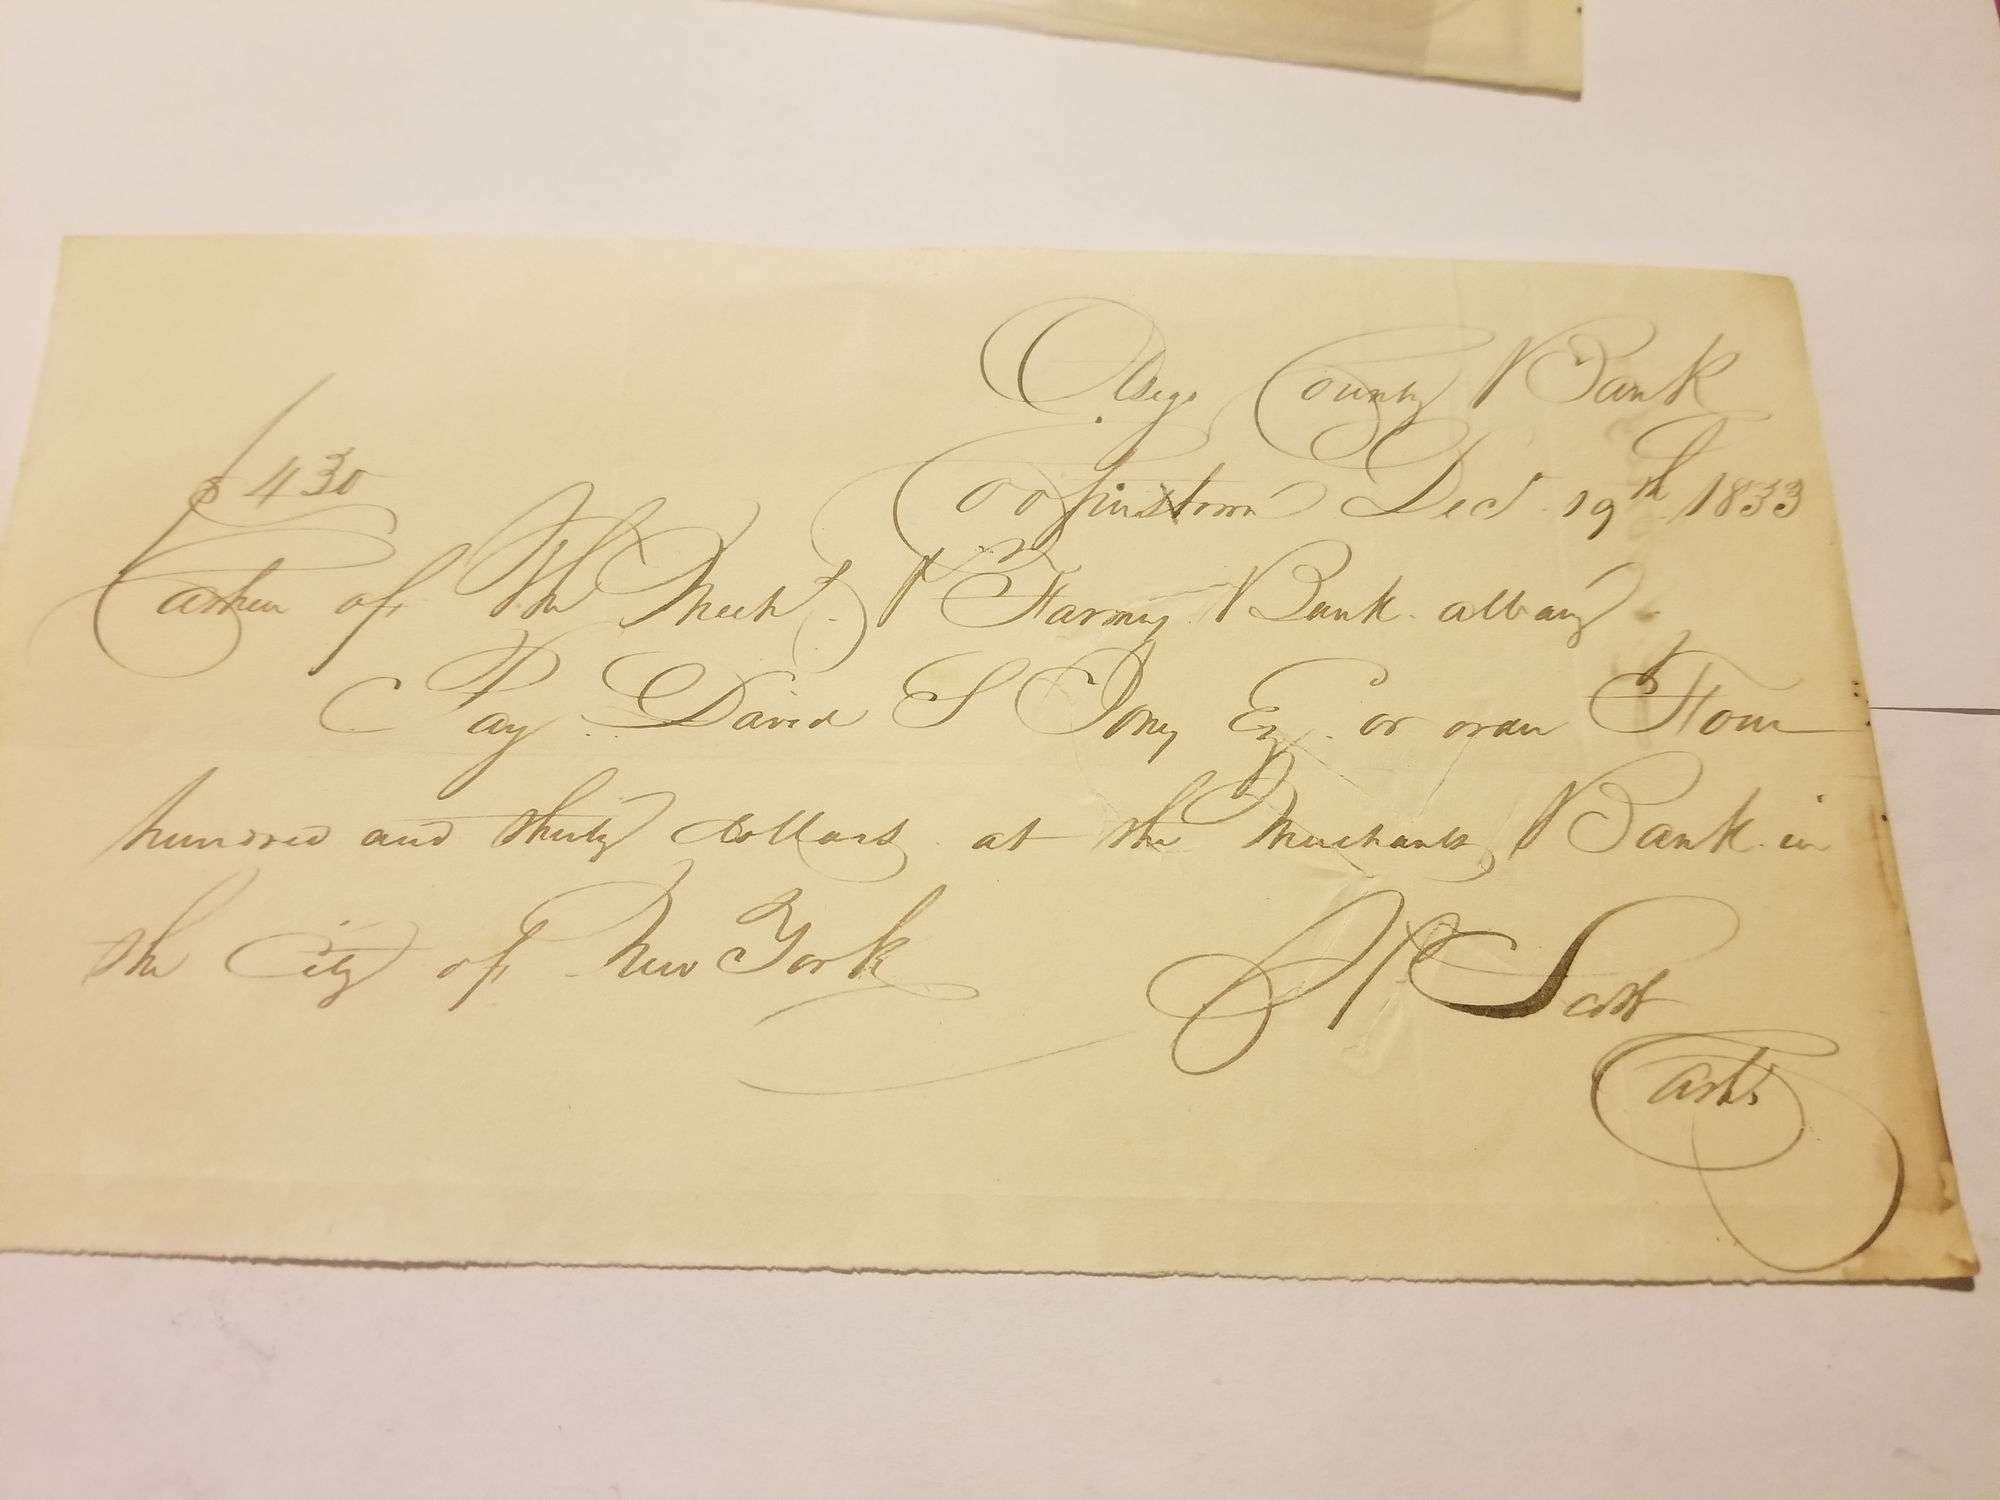 Otsego County Bank
$430 Cooperstown Decr 19th 1833
Cashier of the Mech. & Farmers Bank Albany
Pay David S Jones Esq or order Four
hundred and thirty dollars at the Merchants Bank in
the City of New York
Scott
Cashr